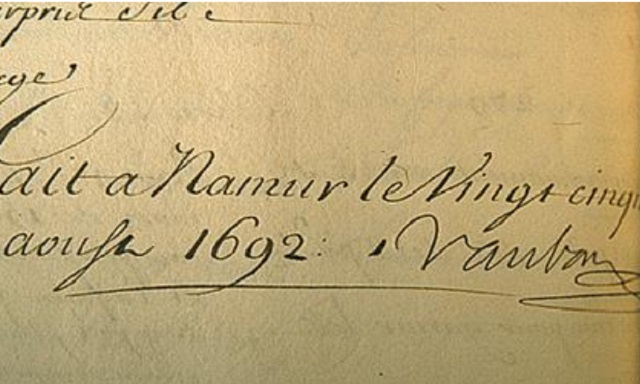 ege
ait a Namur le Vingt cinq
aoust 1692: Vauban